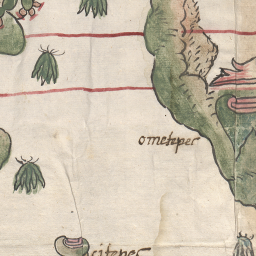 ometepec
citepec